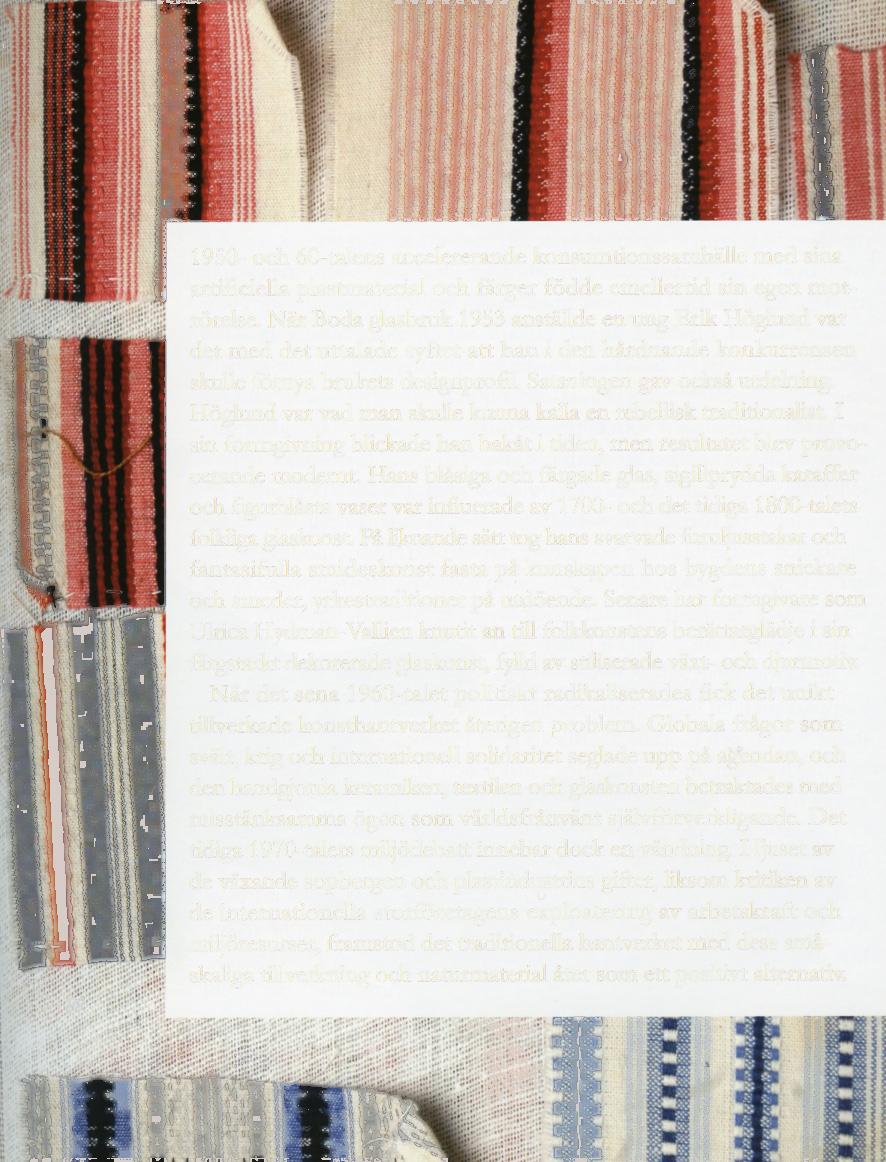 1950- och 60-talens accelererande konsumtionssamhälle med sina
artificiella plastmaterial och färger födde emellertid sin egen mot-
rörelse. När Boda glasbruk 1953 anställde en ung Erik Höglund var
det med det uttalade syftet att han i den hårdnande konkurrensen
skulle förnya brukets designprofil. Satsningen gav också utdelning.
Höglund var vad man skulle kunna kalla en rebellisk traditionalist. I
sin formgivning blickade han bakåt i tiden, men resultatet blev provo-
cerande modernt. Hans blåsiga och färgade glas, sigillprydda karaffer
och figurblåsta vaser var influerade av 1700- och det tidiga 1800-talets
folkliga glaskonst. På liknande sätt tog hans svarvade furuljusstakar och
fantasifulla smideskonst fasta på kunskapen hos bygdens snickare
och smeder, yrkestraditioner på utdöende. Senare har formgivare som
Ulrica Hydman-Vallien knutit an till folkkonstens berättarglädje i sin
färgstarkt dekorerade glaskonst, fylld av stiliserade växt- och djurmotiv.
När det sena 1960-talet politiskt radikaliserades fick det unikt
tillverkade konsthantverket återigen problem. Globala frågor som
svält, krig och internationell solidaritet seglade upp på agendan, och
den handgjorda keramiken, textilen och glaskonsten betraktades med
misstänksamma ögon som världsfrånvänt självförverkligande. Det
tidiga 1970-talets miljödebatt innebar dock en vändning. I ljuset av
de växande sopbergen och plastindustrins gifter, liksom kritiken av
de internationella storföretagens exploatering av arbetskraft och
miljöresurser, framstod det traditionella hantverket med dess små-
skaliga tillverkning och naturmaterial åter som ett positivt alternativ.